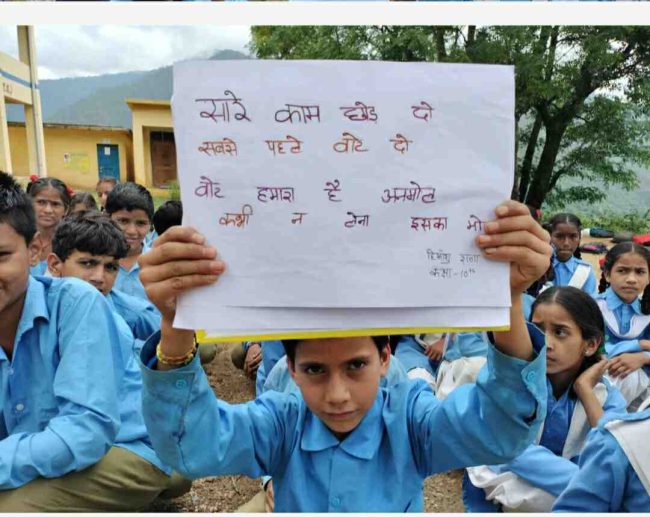 सारे काम छोड़ दो
सबसे पहले वोट दो
वोट हमारा है अनमोल
कभी न लेना इसका मो
कक्षा - 10th